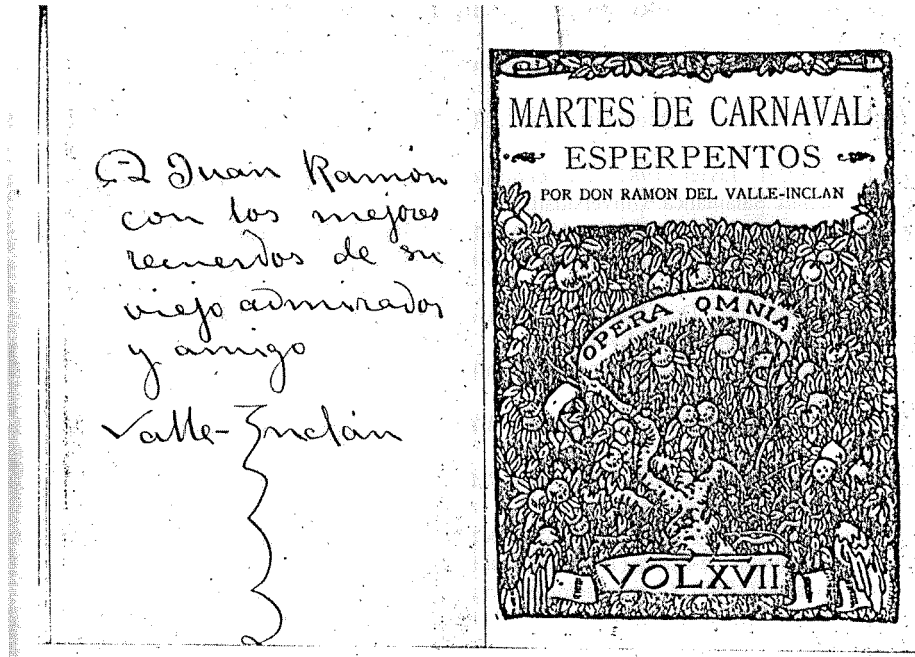 A Juan Ramón
con los mejores
recuerdos de su
viejo admirador
y amigo
Valle-Inclán
MARTES DE CARNAVAL
ESPERPENTOS
POR DON RAMON DEL VALLE-INCLAN
OPERA OMNIA
VOL XVII